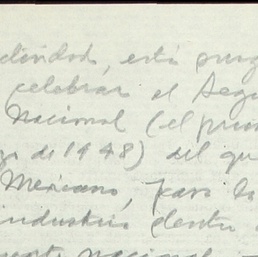 está
celebrar el Seg
Nacional (el prim
zo de 1948) del qu
Mexicano, para lo
industria dentro
nacional